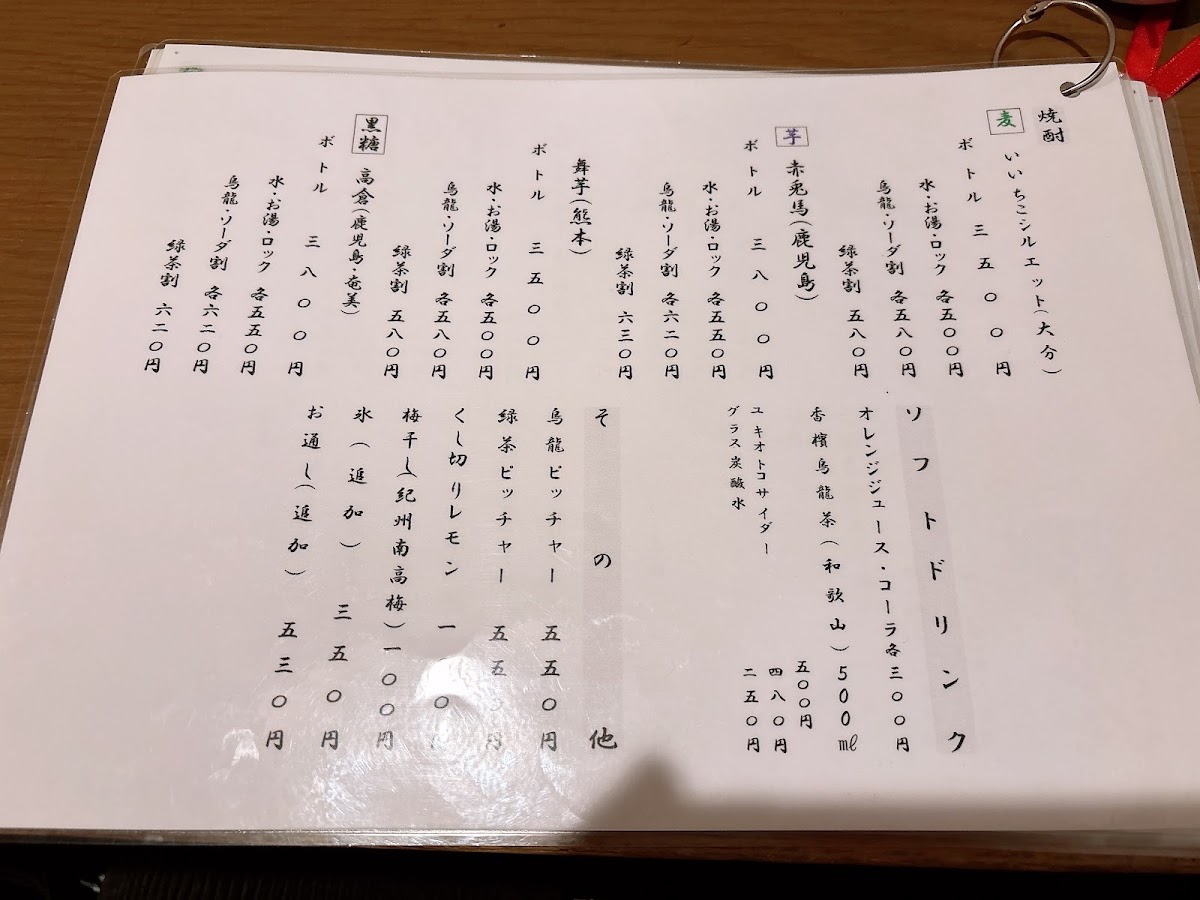 焼酎
麦
いいちこシルエット(大分)
ボトル 三五〇〇円
水・お湯・ロック 各五〇〇円
烏龍・ソーダ割 各五八〇円
緑茶割 五八〇円
芋
赤兎馬(鹿児島)
ボトル 三八〇〇円
水・お湯・ロック 各五五〇円
烏龍・ソーダ割 各六二〇円
緑茶割 六三〇円
舞芋(熊本)
ボトル 三五〇〇円
水・お湯・ロック 各五〇〇円
烏龍・ソーダ割 各五八〇円
緑茶割 五八〇円
黒糖
高倉(鹿児島・奄美)
ボトル 三八〇〇円
水・お湯・ロック 各五五〇円
烏龍・ソーダ割 各六二〇円
緑茶割 六二〇円
ソフトドリンク
オレンジジュース・コーラ各三〇〇円
香檳烏龍茶(和歌山)500㎖
五〇〇円
ユキオトコサイダー 四八〇円
グラス炭酸水 二五〇円
その他
烏龍ピッチャー 五五〇円
緑茶ピッチャー 五五〇円
くし切りレモン 一〇
梅干し(紀州南高梅)一〇〇円
氷(追加) 三五〇円
お通し(追加) 五三〇円